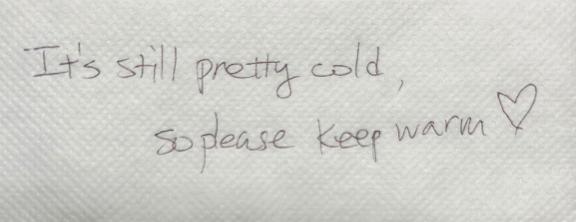 It's still pretty cold,
so please keep warm ♡